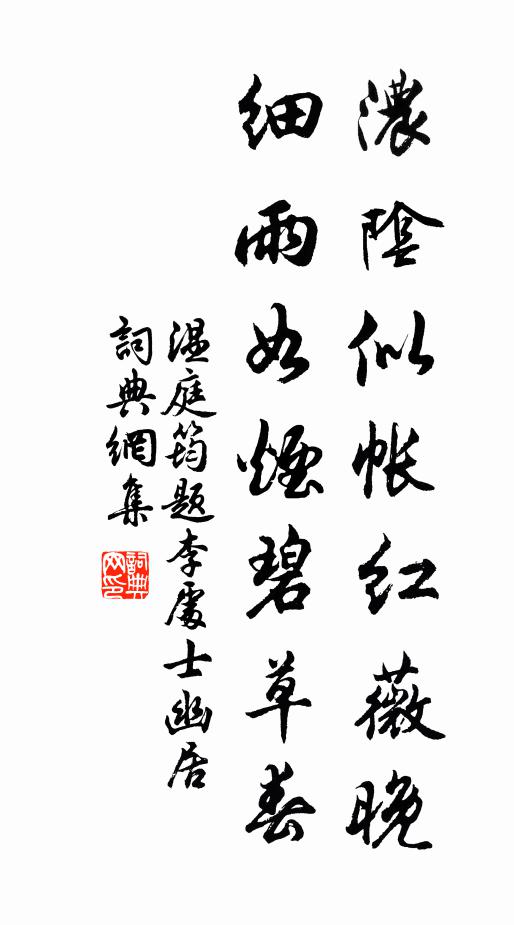 濃陰似帳紅薇晚
細雨如煙碧草春
溫庭筠題李處士幽居
詞典網集
詞典網印